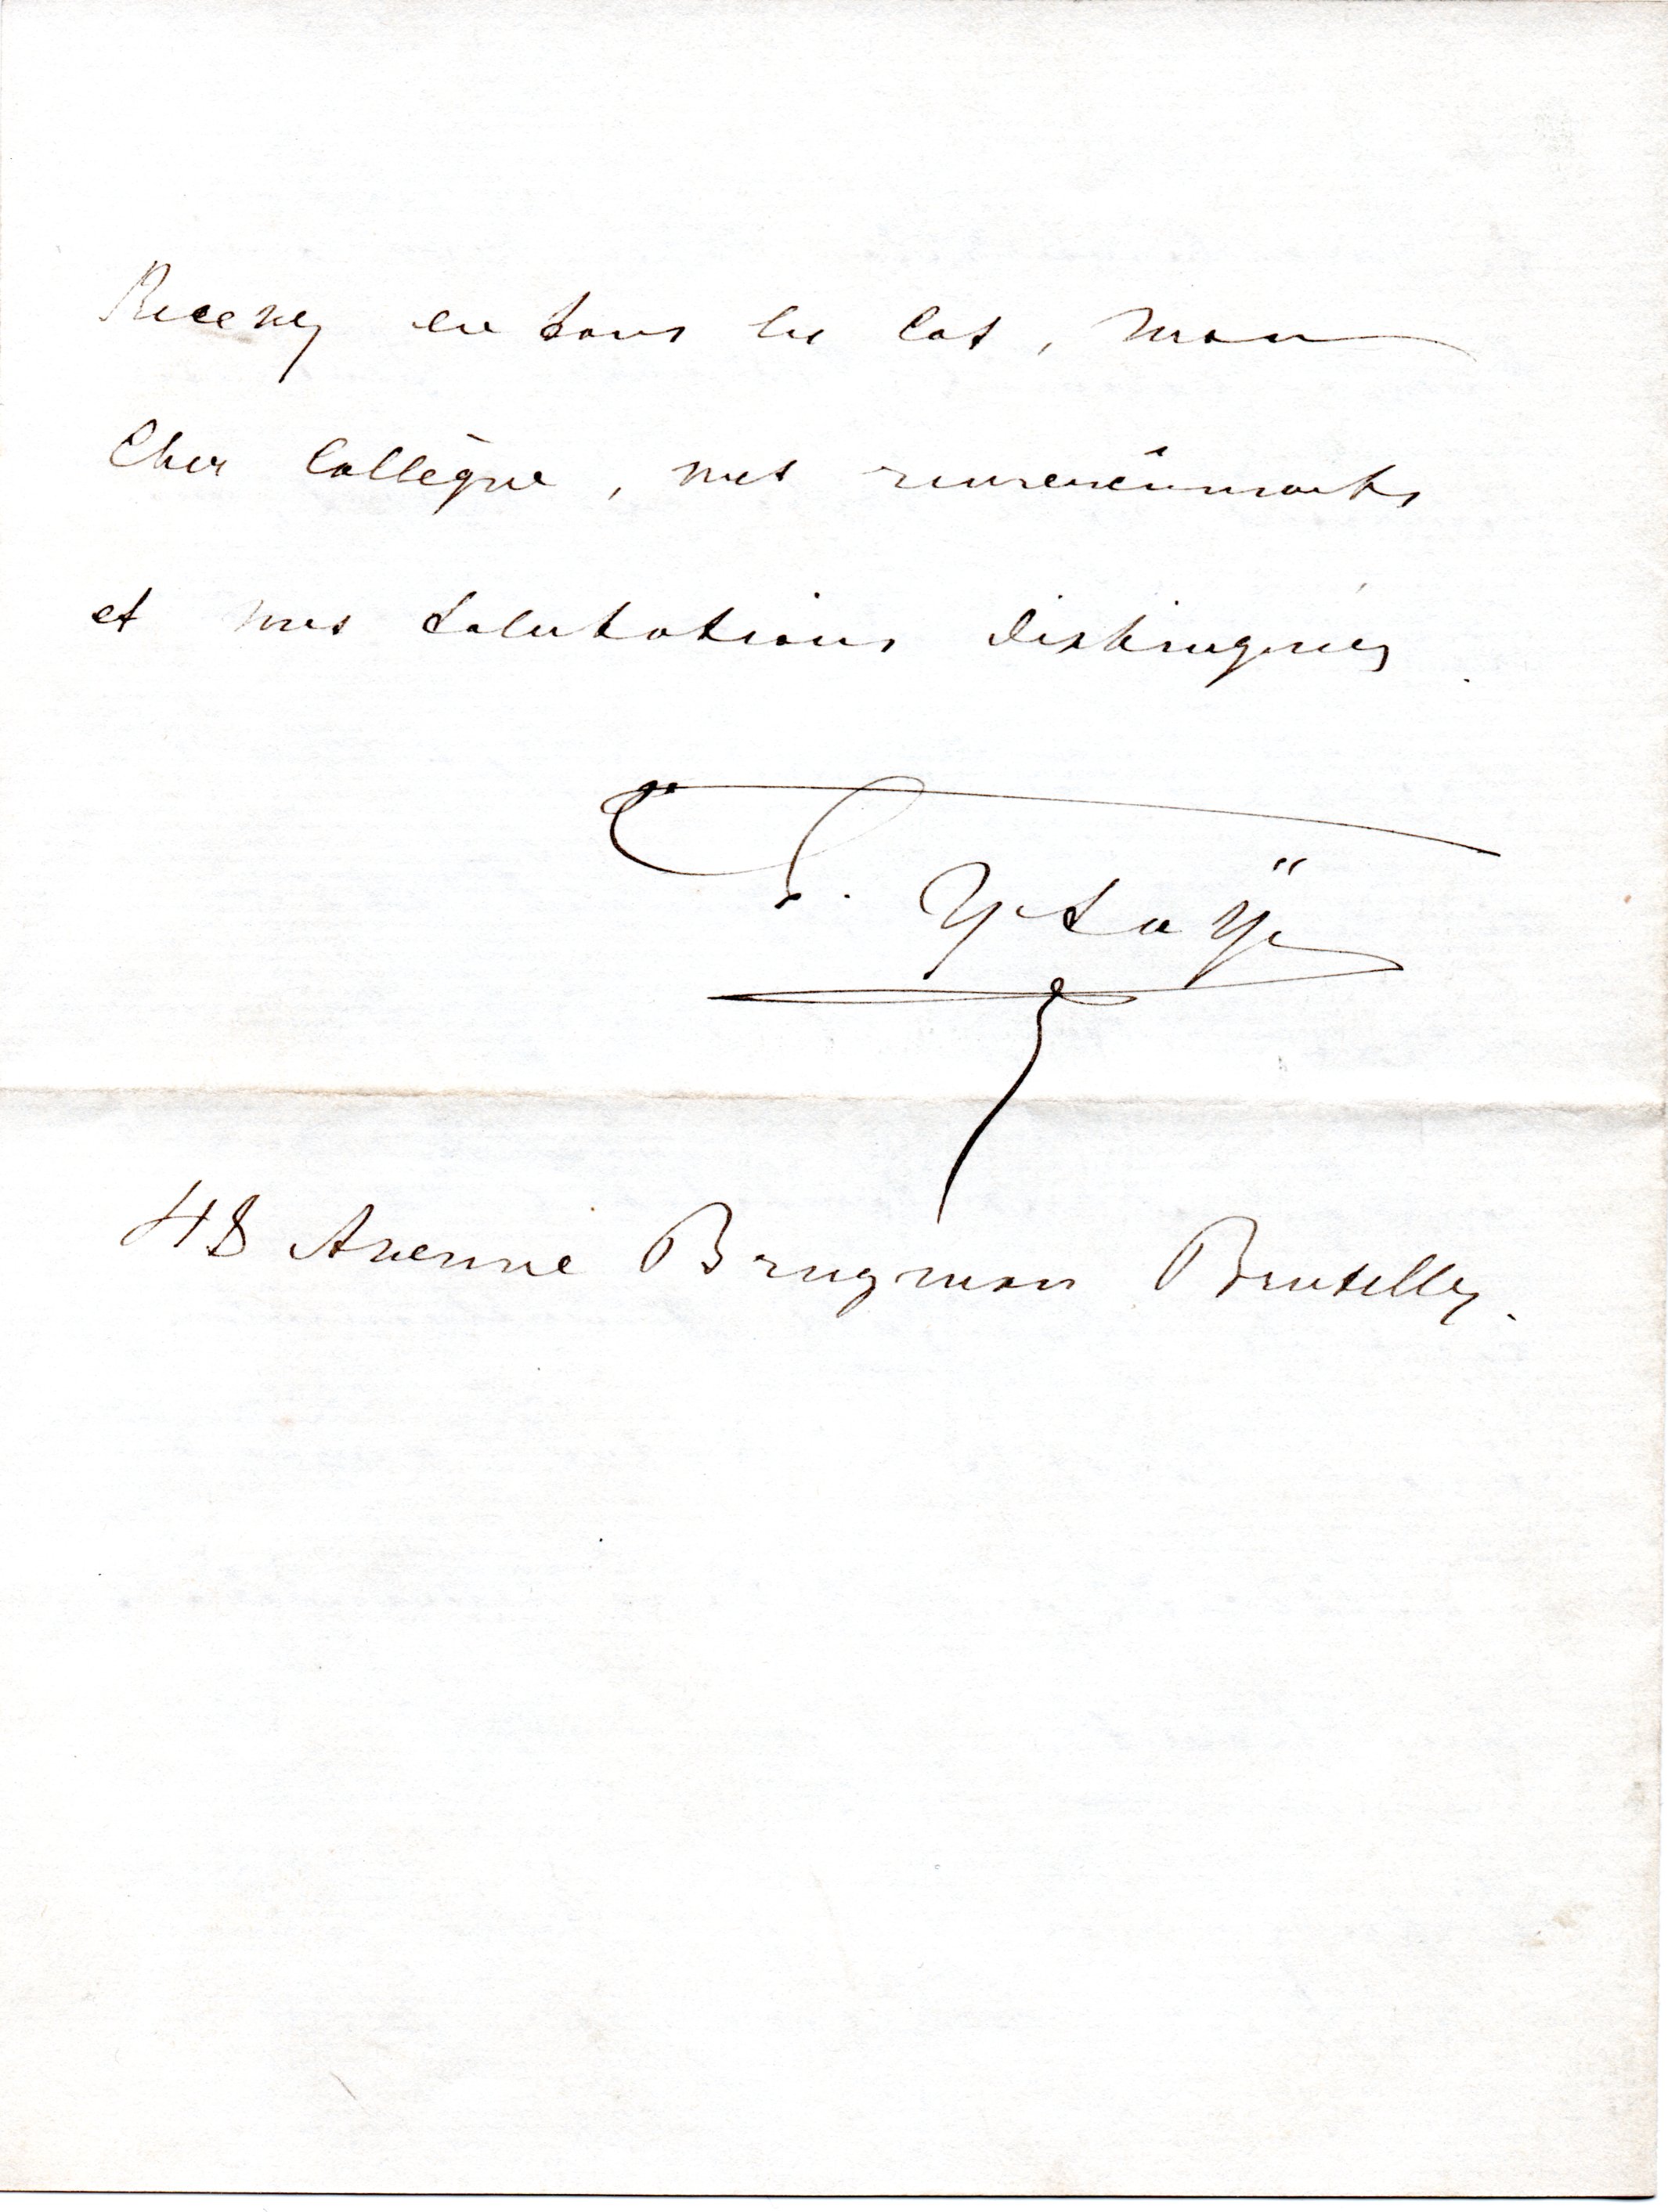 Recevez en tous les cas, mon
Cher Collègue, mes remerciements
et mes salutations distinguées.
Ysaÿe
48 Avenue Brugman Bruxelles.